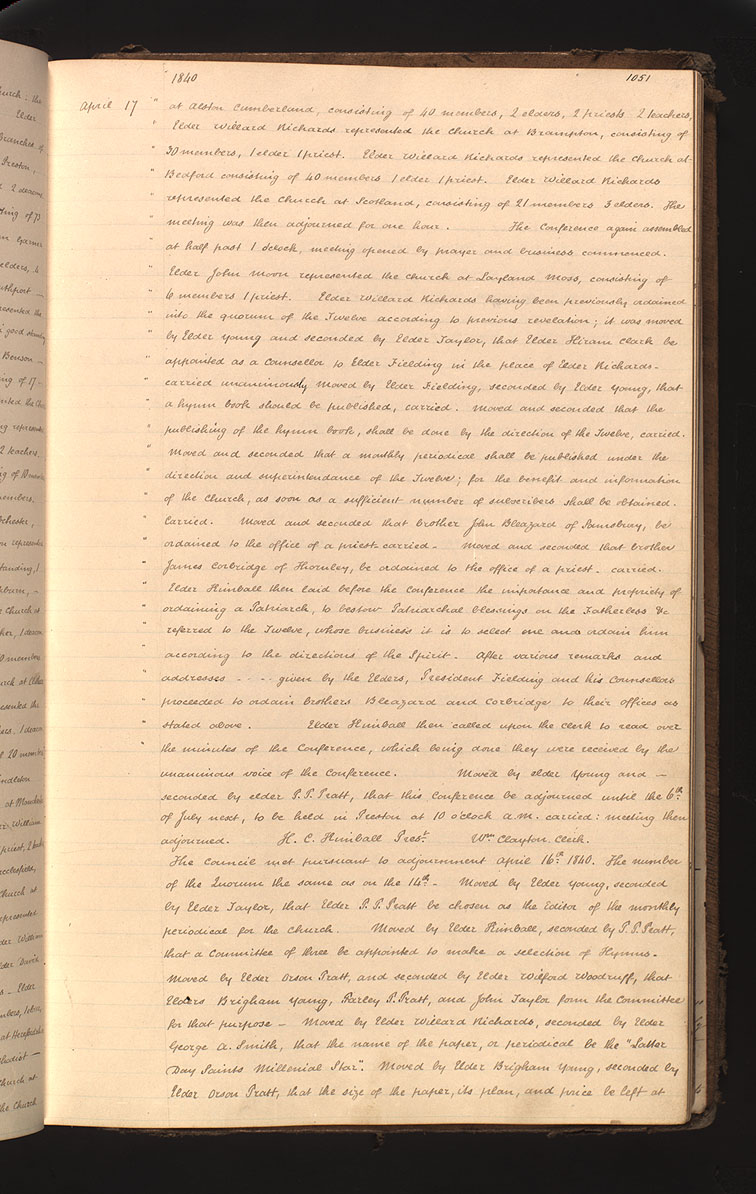 1840 1051
April 17 " at Alston Cumberland, consisting of 40 members, 2 elders, 2 priests 2 teachers,
" Elder Willard Richards represented the Church at Brampton, consisting of
" 30 members, 1 elder 1 priest. Elder Willard Richards represented the Church at
" Bedford consisting of 40 members 1 elder 1 priest. Elder Willard Richards
" represented the Church at Scotland, consisting of 21 members 3 elders. The
" meeting was then adjourned for one hour. The Conference again assembled
" at half past 1 o'clock, meeting opened by prayer and business commenced.
" Elder John Moon represented the Church at Layland Moss, consisting of
" 6 members 1 priest. Elder Willard Richards having been previously ordained
" into the quorum of the Twelve according to previous revelation; it was moved
" by Elder Young and seconded by Elder Taylor, that Elder Hiram Clark be
" appointed as a Counsellor to Elder Fielding in the place of Elder Richards -
" carried unanimously Moved by Elder Fielding, seconded by Elder Young, that
" a hymn book should be published, carried. Moved and seconded that the
" publishing of the hymn book, shall be done by the direction of the Twelve, carried.
" Moved and seconded that a monthly periodical shall be published under the
" direction and superintendance of the Twelve; for the benefit and information
" of the Church, as soon as a sufficient number of subscribers shall be obtained.
" Carried. Moved and seconded that brother John Bleazard of Samsbury, be
" ordained to the office of a priest - carried - Moved and seconded that brother
" James Corbridge of Thornley, be ordained to the office of a priest - carried.
" Elder Kimball then laid before the Conference the importance and propriety of
" ordaining a Patriarch, to bestow Patriarchal blessings on the Fatherless &c
" referred to the Twelve, whose business it is to select one and ordain him
" according to the directions of the Spirit - After various remarks and
" addresses - - - given by the Elders, President Fielding and his Counsellors
" proceeded to ordain brothers Bleazard and Corbridge to their offices as
" stated above. Elder Kimball then called upon the clerk to read over
" the minutes of the Conference, which being done they were received by the
unanimous voice of the Conference. Moved by elder Young and -
seconded by elder P. P. Pratt, that this Conference be adjourned until the 6th
of July next, to be held in Preston at 10 o'clock a.m. carried: meeting then
adjourned. H. C. Kimball Prest. Wm Clayton Clerk.
The Council met pursuant to adjournment April 16th 1840. The number
of the Quorum the same as on the 14th - Moved by Elder Young, seconded
by Elder Taylor, that Elder P. P. Pratt be chosen as the Editor of the monthly
periodical for the Church. Moved by Elder Kimball, seconded by P. P. Pratt,
that a Committee of three be appointed to make a selection of Hymns -
Moved by Elder Orson Pratt, and seconded by Elder Wilford Woodruff, that
Elders Brigham Young, Parley P. Pratt, and John Taylor form the Committee
for that purpose - Moved by Elder Willard Richards, seconded by Elder
George A. Smith, that the name of the paper, or periodical be the "Latter
Day Saints Millenial Star". Moved by Elder Brigham Young, seconded by
Elder Orson Pratt, that the size of the paper, its plan, and price be left at